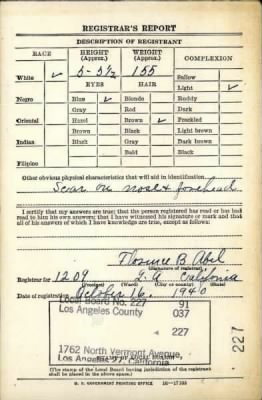 REGISTRAR'S REPORT
DESCRIPTION OF REGISTRANT
RACE HEIGHT (Approx.) WEIGHT (Approx.) COMPLEXION
White ✓ 5-5½ 155 Sallow
EYES HAIR Light ✓
Negro Blue ✓ Blonde Ruddy
Gray Red Dark
Oriental Hazel Brown ✓ Freckled
Brown Black Light brown
Indian Black Gray Dark brown
Bald Black
Filipino
Other obvious physical characteristics that will aid in identification
Scar on nose & forehead
I certify that my answers are true; that the person registered has read or has had read to him his own answers; that I have witnessed his signature or mark and that all of his answers of which I have knowledge are true, except as follows:
Florence B. Abel
(Signature of registrar)
Registrar for 1209 L.A. California
(Precinct) (Ward) (City or county) (State)
Date of registration October 16, 1940
Local Board No. 227 91
Los Angeles County 037
227
1762 North Vermont Avenue
Los Angeles, California
227
(The stamp of the Local Board having jurisdiction of the registrant shall be placed in the above space.)
U. S. GOVERNMENT PRINTING OFFICE 16-17105